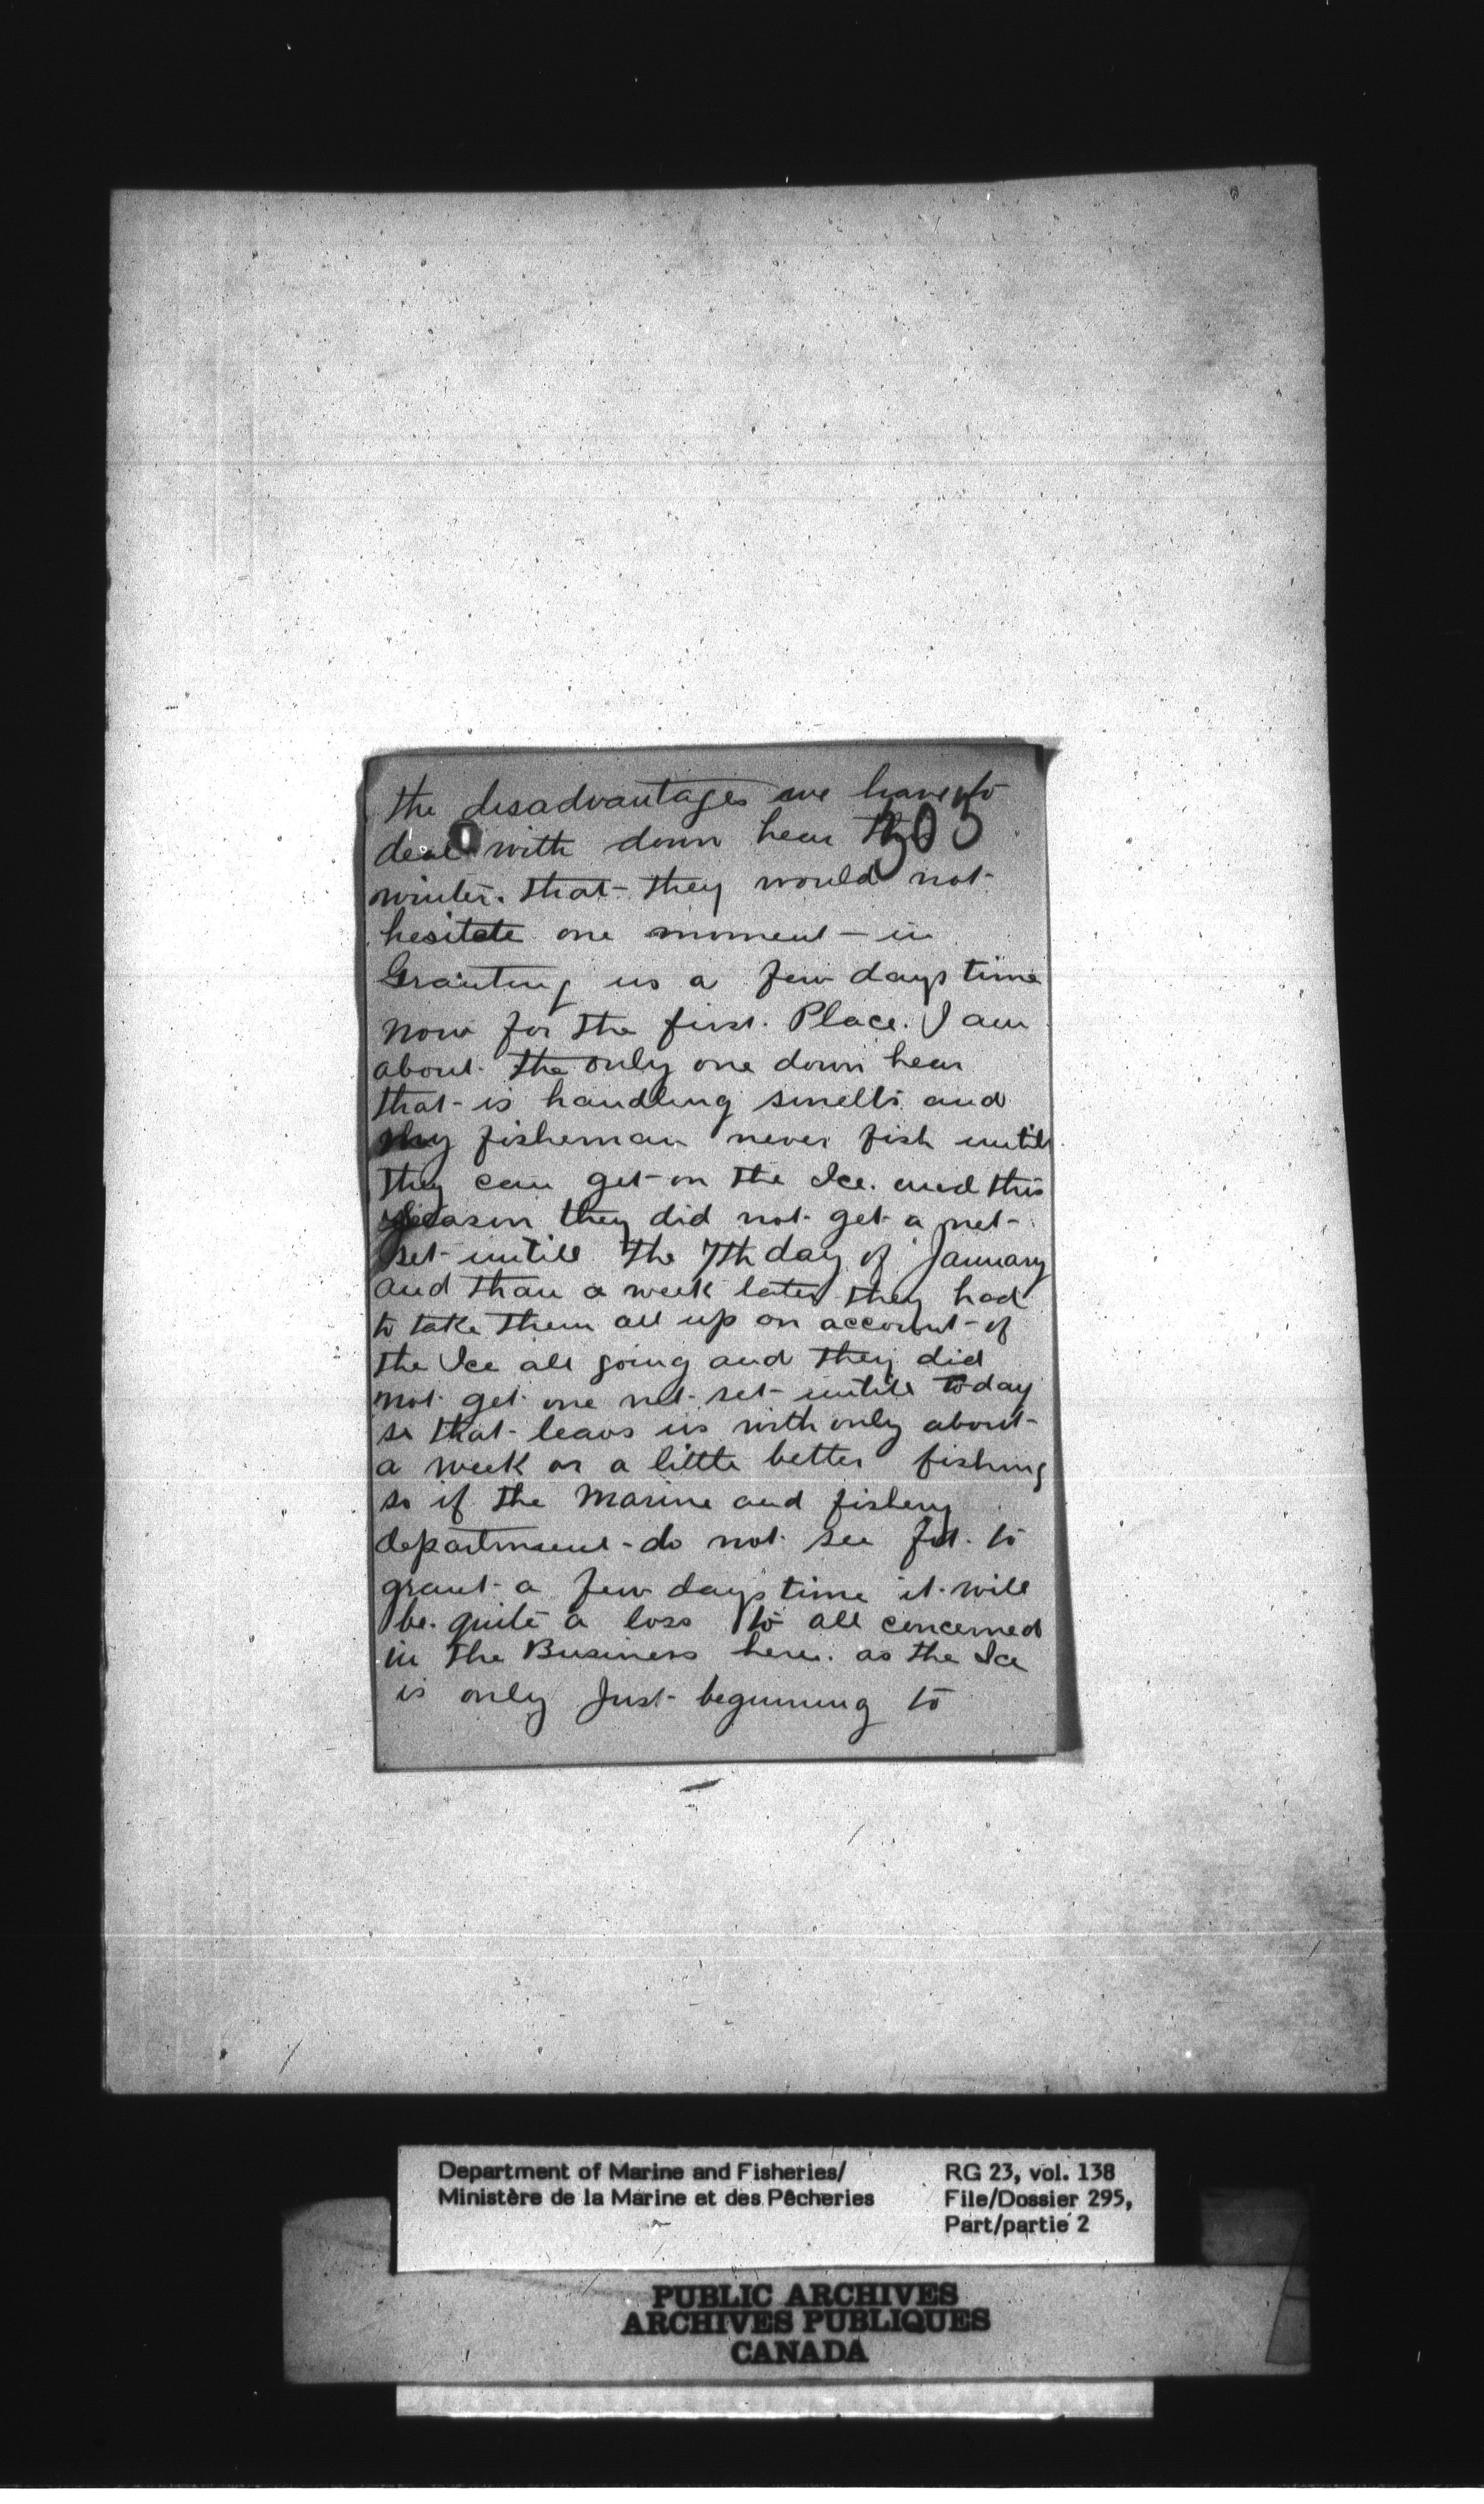 the disadvantages we have to
305
deal with down hear this
winter. that they would not
hesitate one moment in
Granting us a few days time
now for the first. Place. I am
about the only one down hear
that is handling smelts and
my fisheman never fish untill
they can get on the Ice. and this
season they did not get a net
set untill the 7th day of January
and than a week later they had
to take them all up on account of
the Ice all going and they did
not get one net set untill today
so that leavs us with only about
a week or a little better fishing
so if the Marine and fishery
department do not see fit to
grant a few days time it will
be quite a loss to all concerned
in the Business here. as the Ice
is only Just beginning to
Department of Marine and Fisheries/
Ministère de la Marine et des Pêcheries
RG 23, vol. 138
File/Dossier 295,
Part/partie 2
PUBLIC ARCHIVES
ARCHIVES PUBLIQUES
CANADA